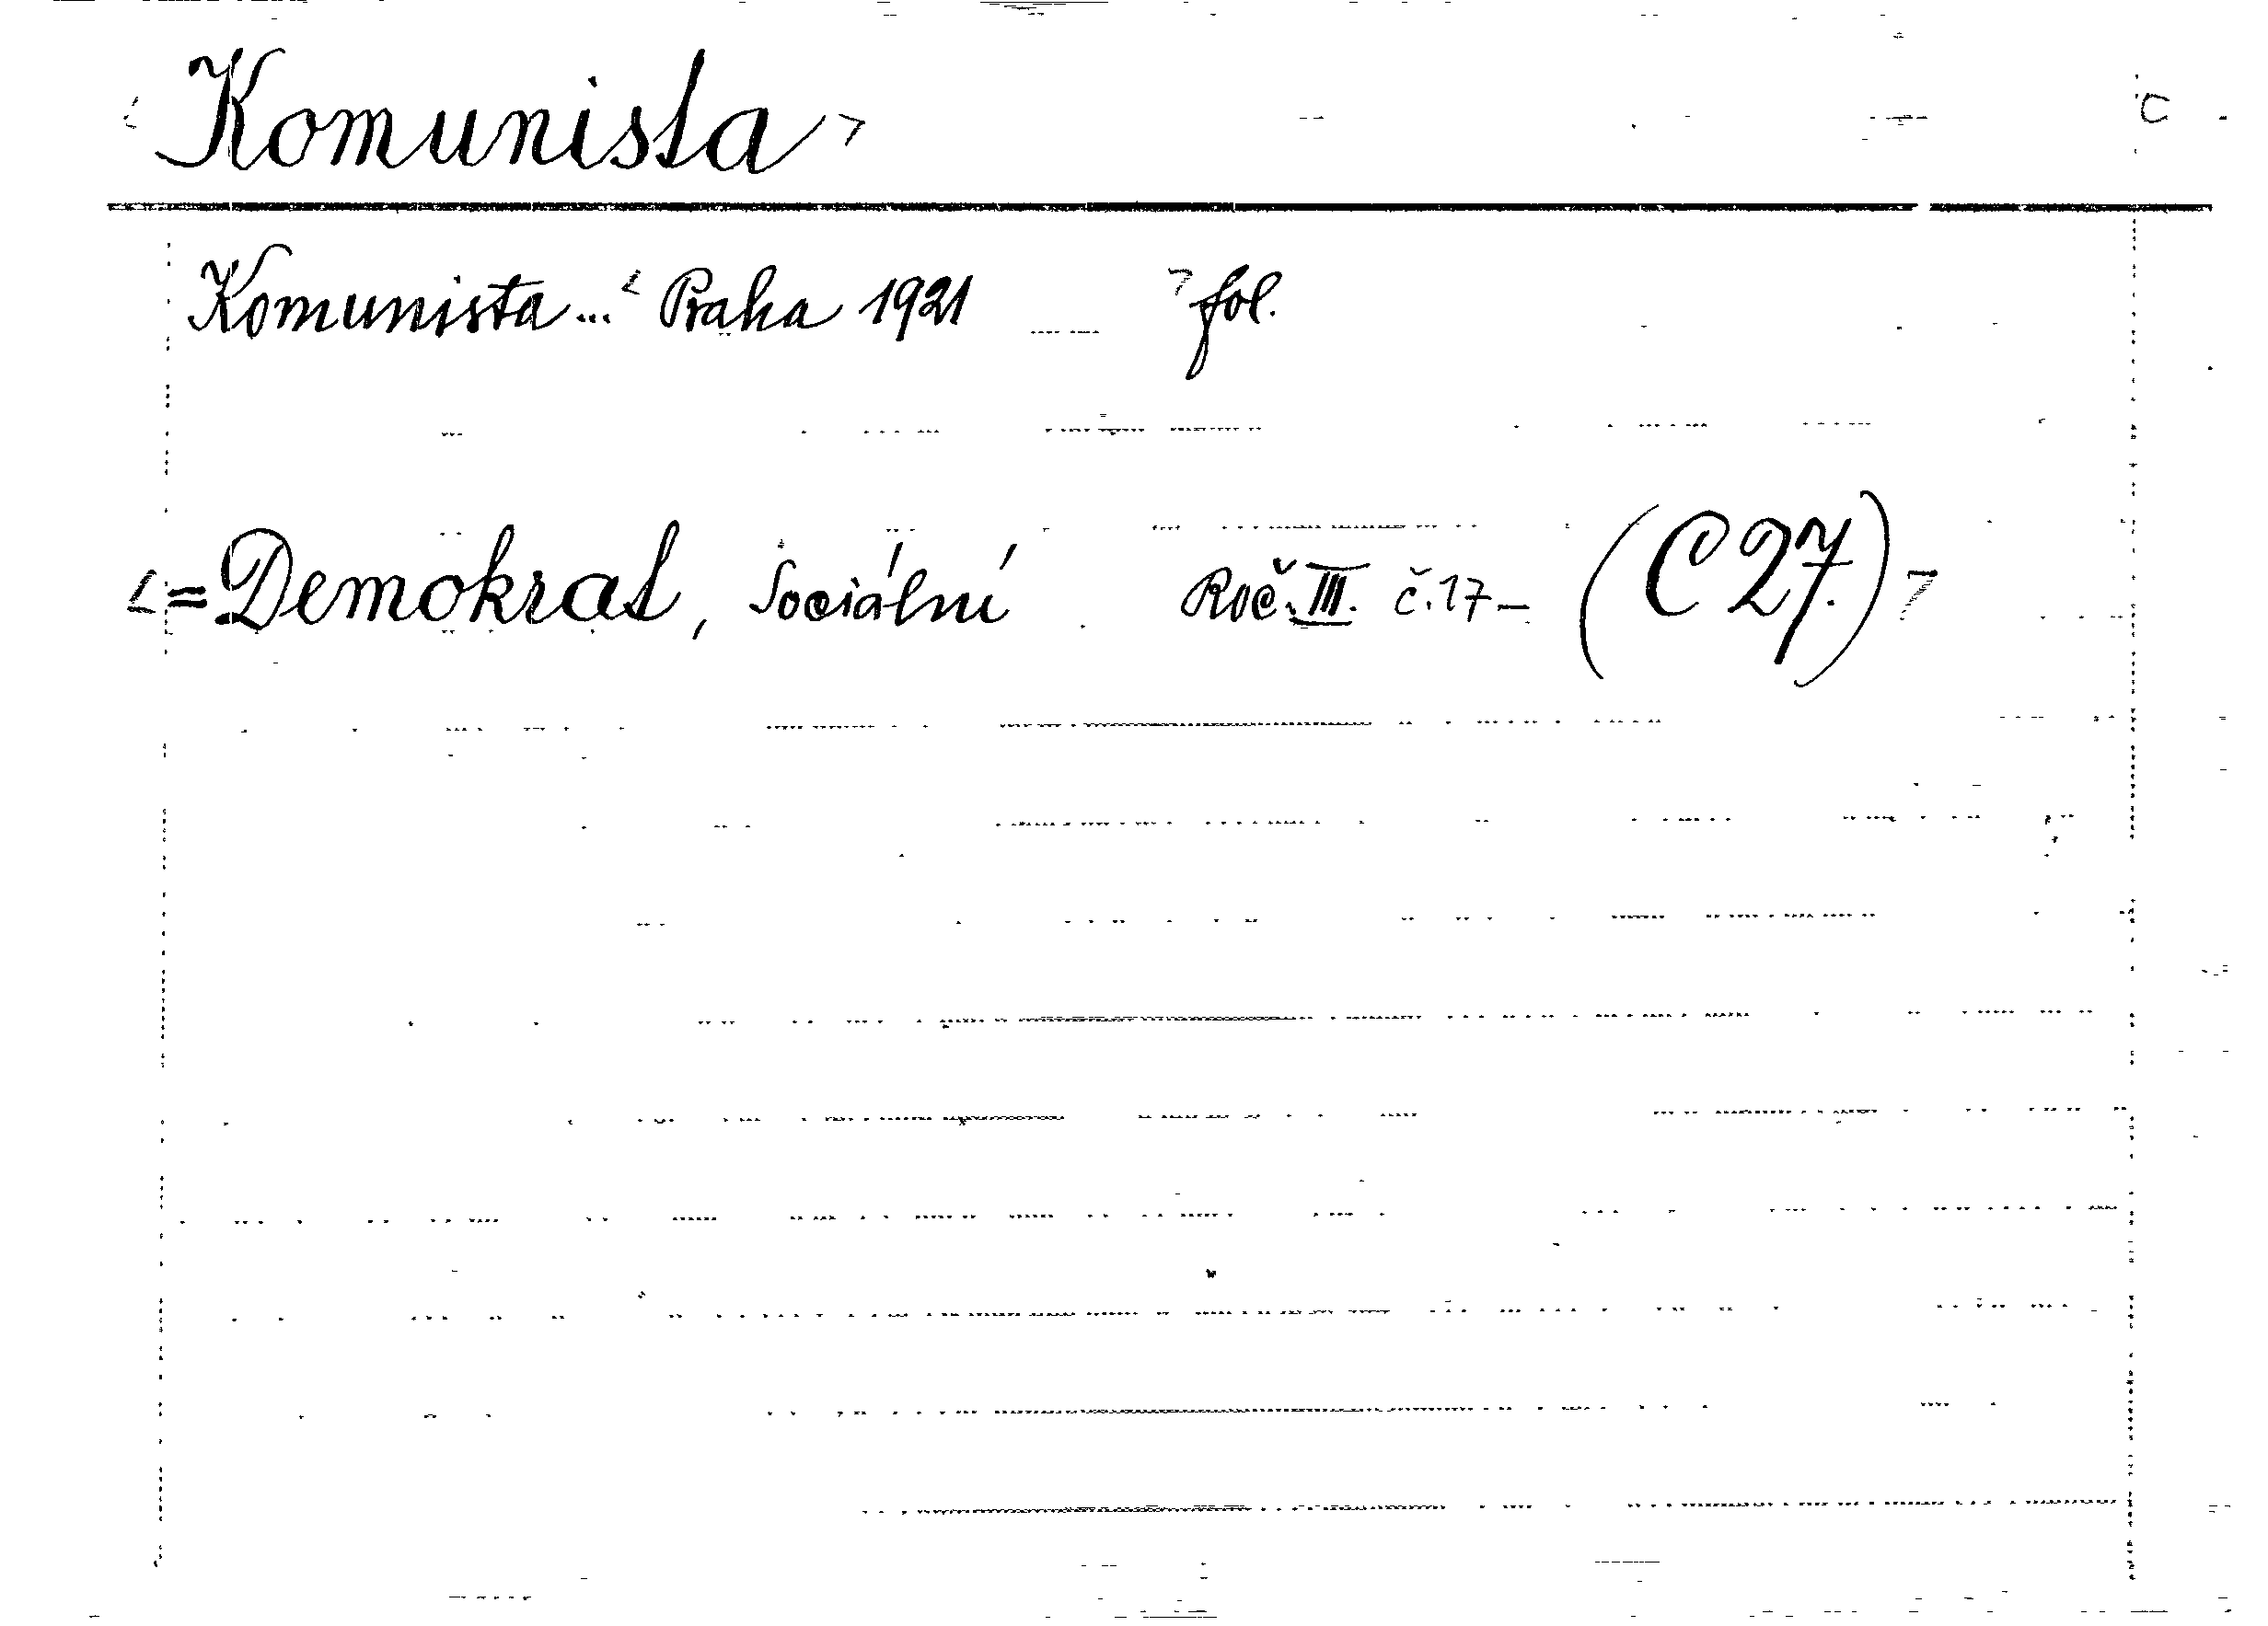 < Komunista > C
Komunista... < Praha 1921 > fol.
< = Demokrat, Sociální Roč. III. č. 17 – (C 27.) >